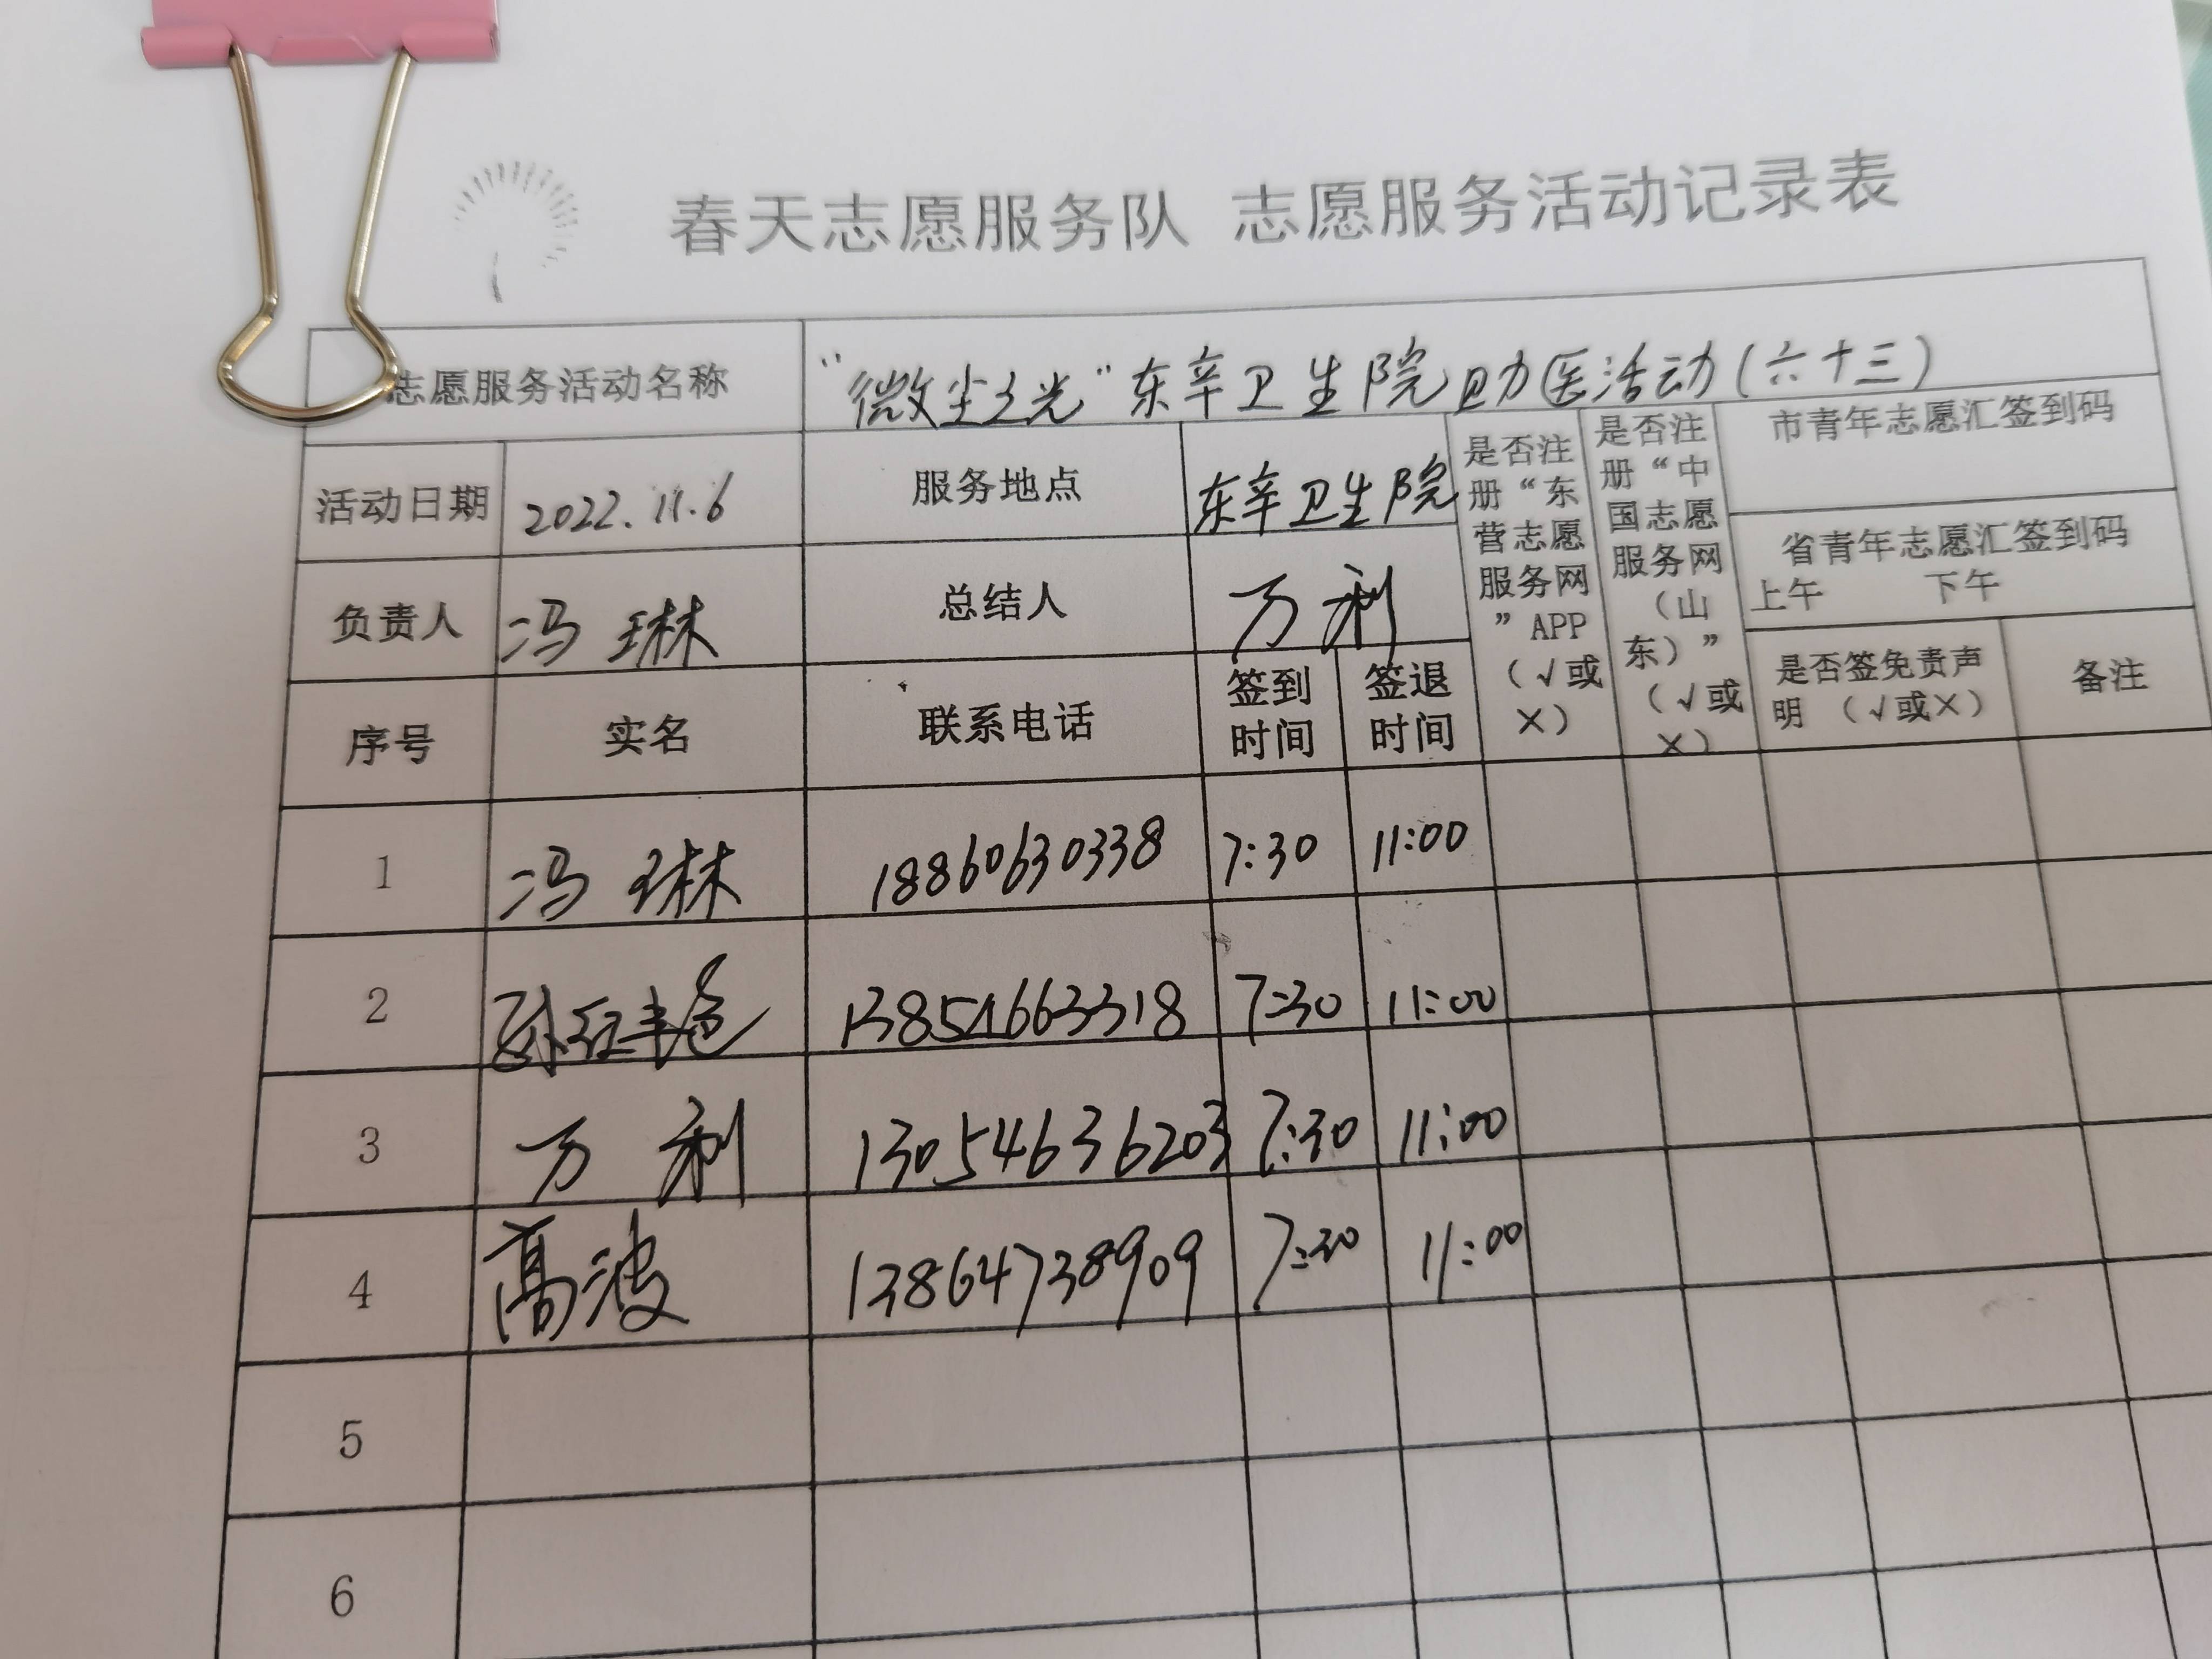 春天志愿服务队 志愿服务活动记录表
志愿服务活动名称 “微尘之光”东辛卫生院助医活动(六十三)
活动日期 2022.11.6 服务地点 东辛卫生院
是否注册“东营志愿服务网”APP（√或×）
是否注册“中国志愿服务网（山东）”（√或×）
市青年志愿汇签到码
省青年志愿汇签到码
上午 下午
负责人 冯琳 总结人 万利
是否签免责声明 （√或×） 备注
序号 实名 联系电话 签到时间 签退时间
1 冯琳 18860630338 7:30 11:00
2 孙红艳 13854663318 7:30 11:00
3 万利 13054636203 7:30 11:00
4 高波 13864738909 7:30 11:00
5
6